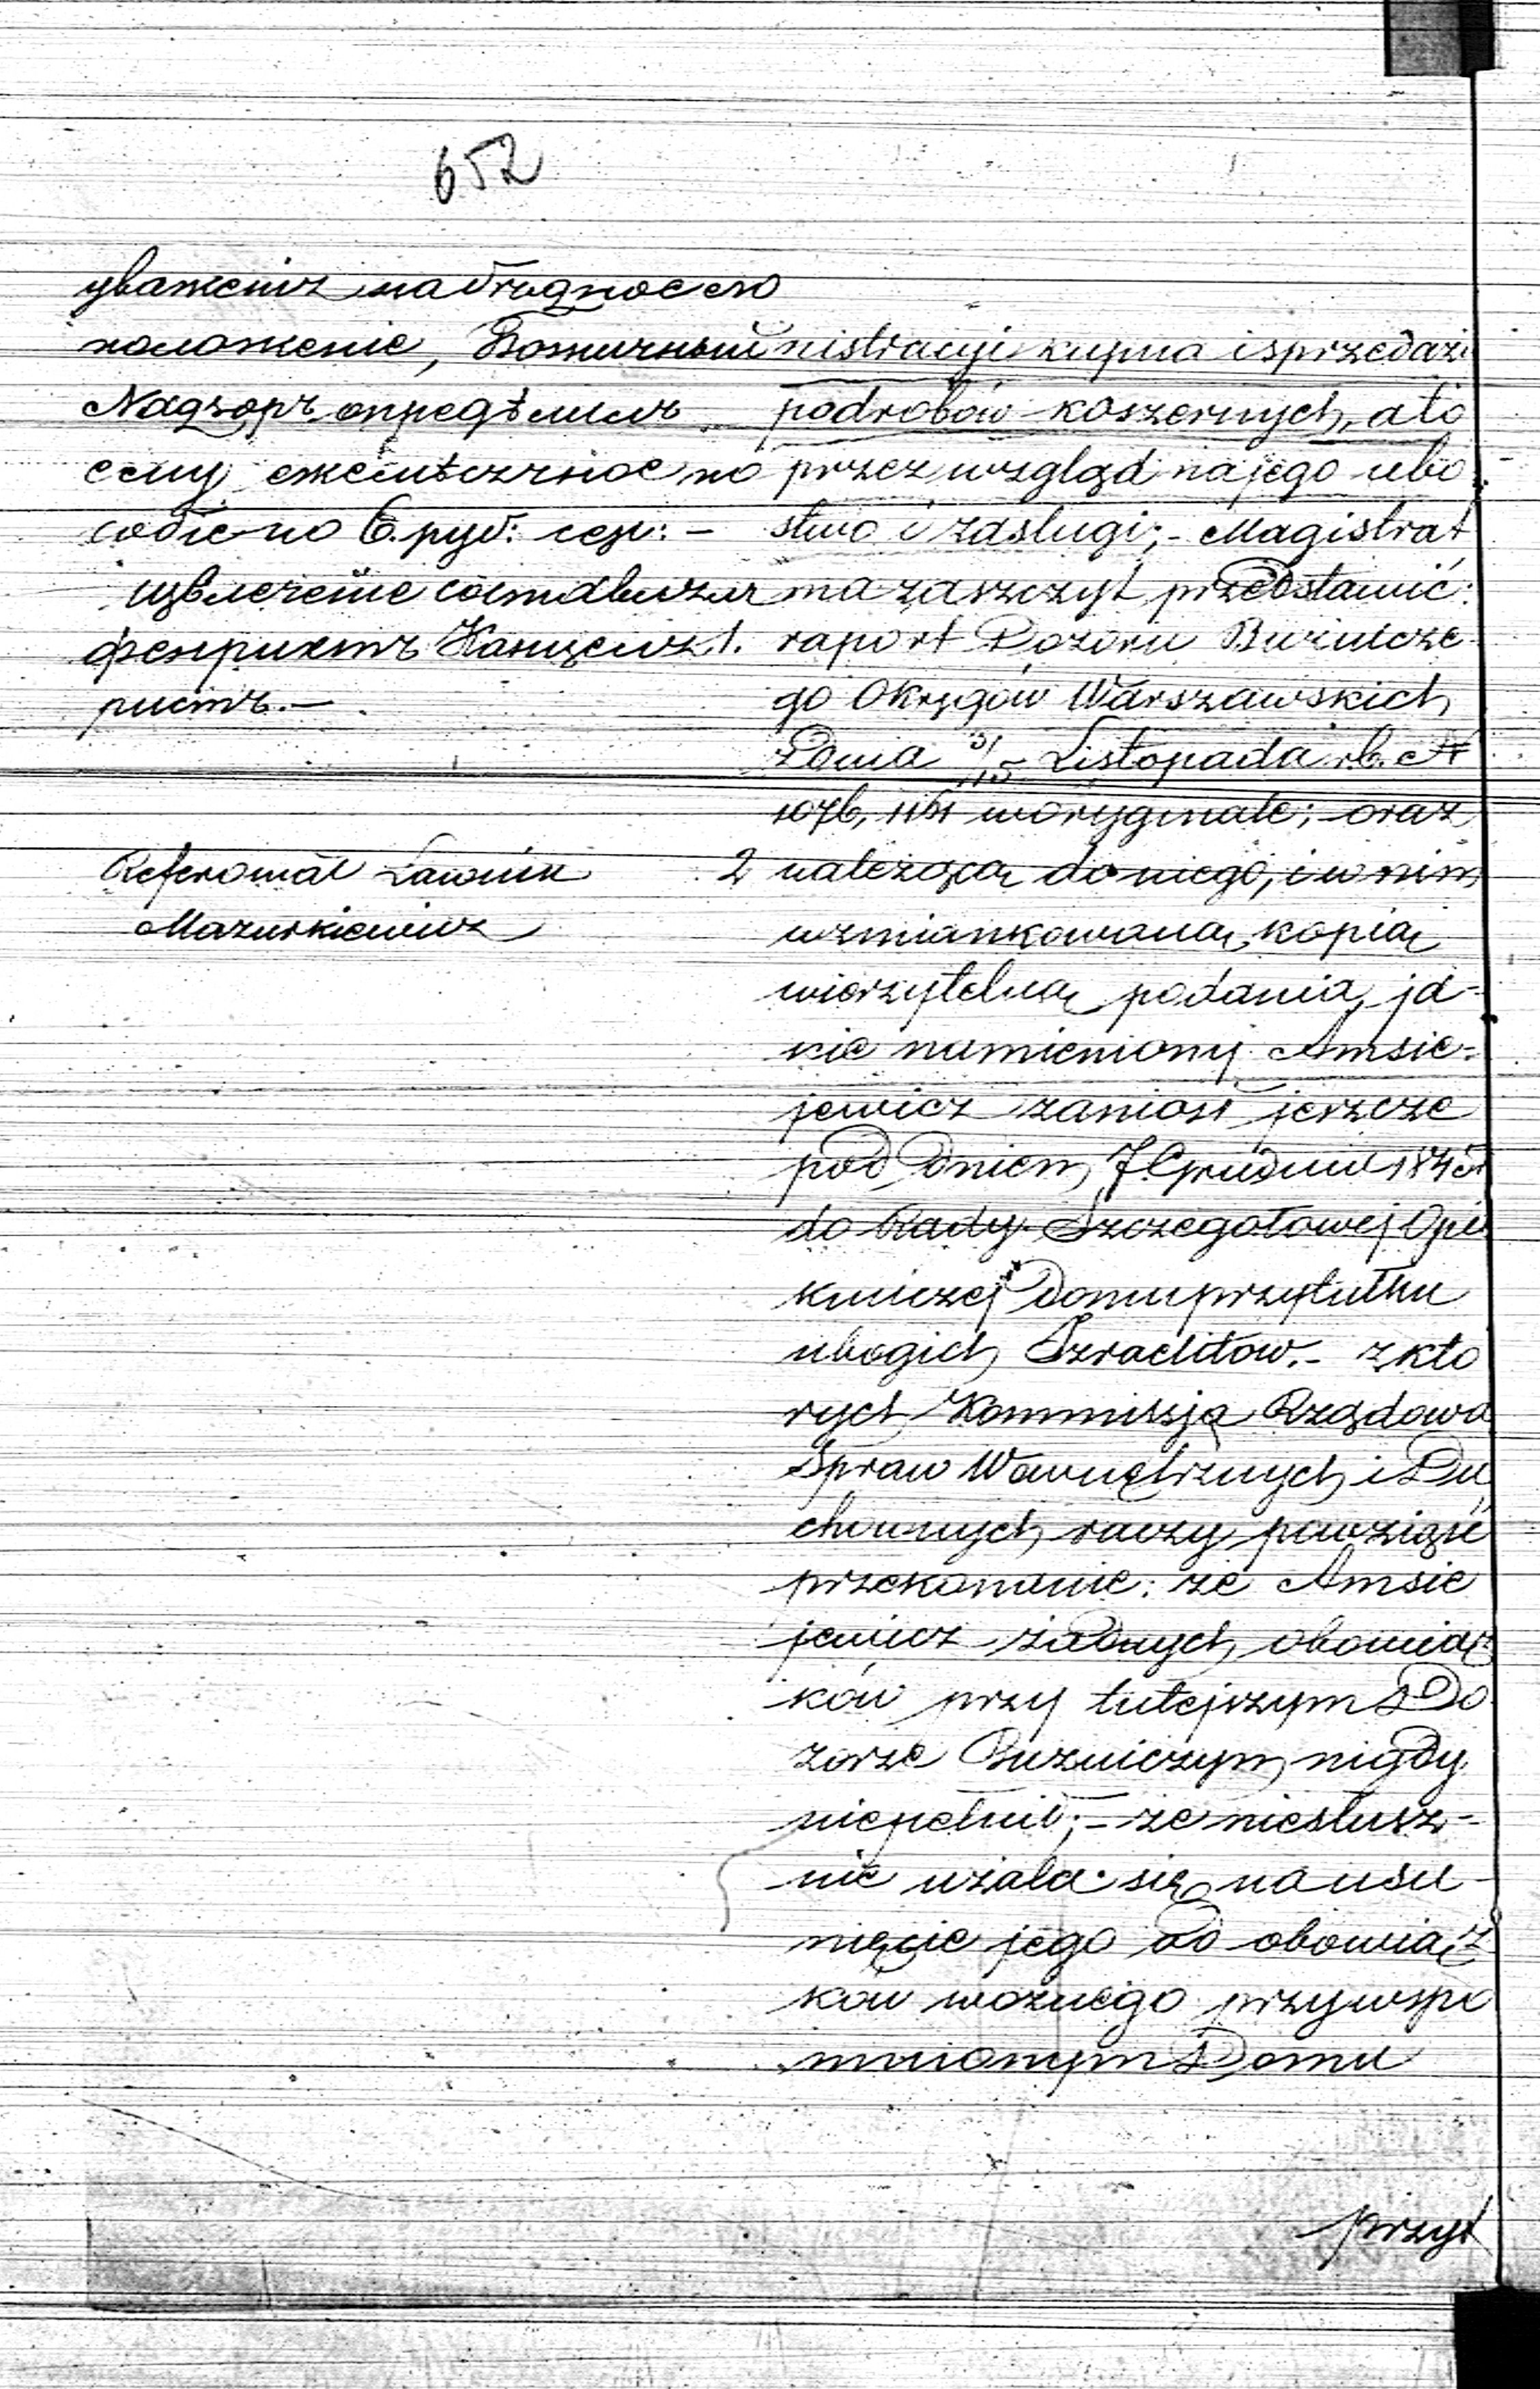 652
уваженія на бѣдное его
положеніе, Божничный
Надзоръ опредѣлилъ
ему ежемѣсячное по
собіе по 6. руб: сер: –
Извлеченіе составлялъ
Канцеля
ристъ. –
Referował Ławnik
Mazurkiewicz
nistracyi kupna i sprzedaży
podrobów koszernych, a to
przez wzgląd na jego ubó
stwo i zasługi; – Magistrat
ma zaszczyt przedstawić:
1. raport Dozoru Bużnicze
go Okręgów Warszawskich
z dnia 3/15 Listopada r.b. N
1076, 1161 w oryginale; oraz
2 należącą do niego, i w nim
wzmiankowaną kopią
wierzytelną podania, ja-
kie namieniony Amsie-
jewicz zaniósł jeszcze
pod dniem 7 Grudnia 1845 r
do Rady Szczegółowej Opie
kuńczej Domu przytułku
ubogich Izraelitów. – z któ
rych Kommissja Rządowa
Spraw Wewnętrznych i Du
chownych raczy powziąść
przekonanie: że Amsie
jewicz żadnych obowiąz
ków przy tutejszym Do
zorze Bużniczym nigdy
niepełnił; – że niesłusz-
nie użala się na usu-
nięcie jego od obowiąz
ków woźnego przy wspo
mnionym Domu
przyt